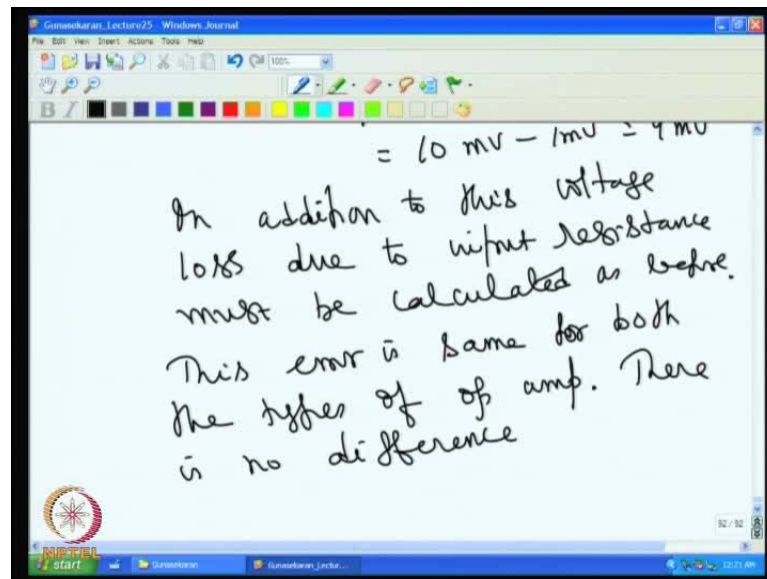 Gunasekaran_Lecture25 - Windows Journal
File Edit View Insert Actions Tools Help
100%
B I
= 10 mV - 1mV = 9 mV
In addition to this voltage
loss due to input resistance
must be calculated as before.
This error is same for both
the types of op amp. There
is no difference
92 / 92
NPTEL
start Gunasekaran Gunasekaran_Lectur... 12:21 AM